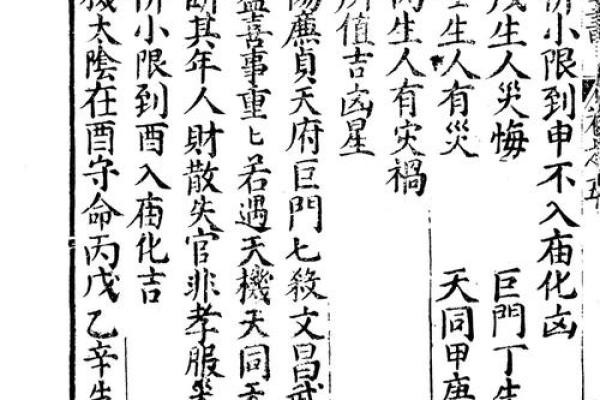 小限到申不入庙化凶
生人災悔　巨門丁生
生人有災　天同甲庚
生人有灾禍
所值吉凶星
陽廉貞天府巨門七殺文昌武
喜事重匕若遇天機天同
斷其年人財散失官非孝服
小限到酉入庙化吉
機太陰在酉守命丙戊乙辛生